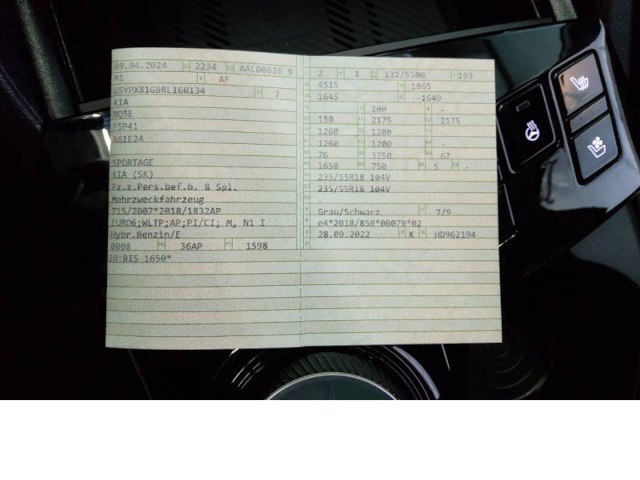 09.04.2024 2234 AAL00036 9
M1 AF
U5YPX81GBRL160134 7
KIA
NQ5E
F5P41
A61E24
SPORTAGE
KIA (SK)
Fz.z.Pers.bef.b. 8 Spl.
Mehrzweckfahrzeug
715/2007*2018/1832AP
EURO6;WLTP;AP;PI/CI; M, N1 I
Hybr.Benzin/E
0008 36AP 1598
20:BIS 1650*
2 1 132/5500 193
4515 1865
1645 --1649
- 100 -
130 2175 2175
1260 1200 -
1260 1200 -
76 3750 67
1650 750 5 -
235/55R18 104V
235/55R18 104V
-
Grau/Schwarz 7/9
e4*2018/858*00079*02
28.09.2022 K HD962194